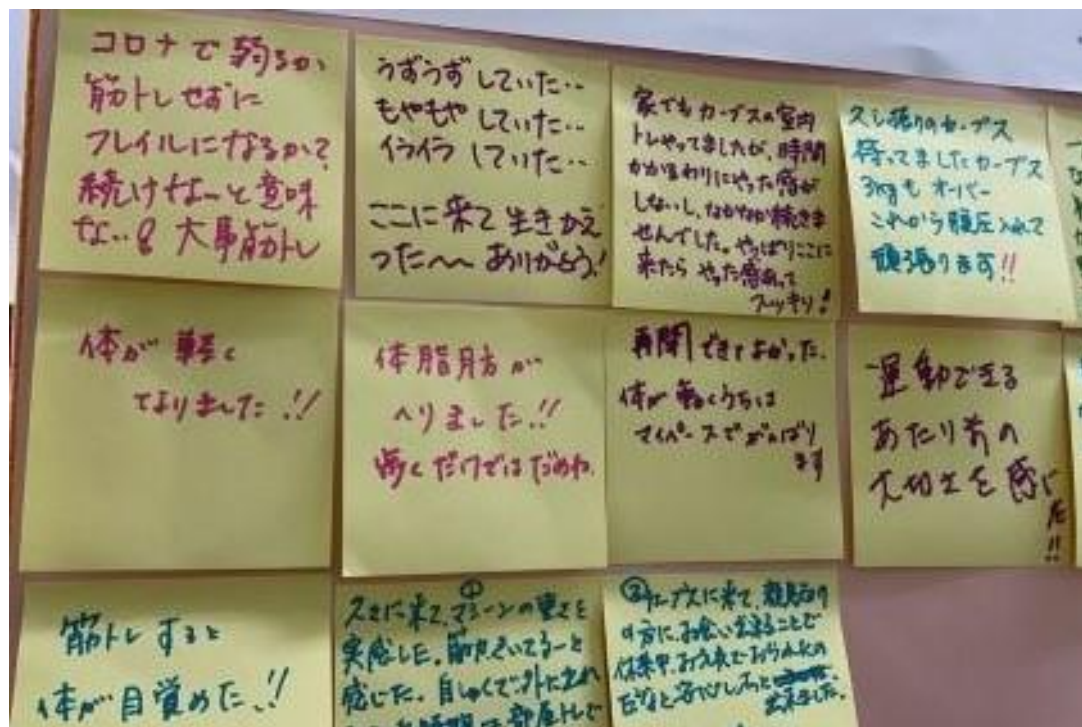 コロナで弱るか、
筋トレせずに
フレイルになるか?
続けなーと意味
ない 大事筋トレ
うずうずしていた‥
もやもやしていた‥
イライラしていた‥
ここに来て生きかえ
った〜〜ありがとう!
家でもカーブスの室内
トレやってましたが、時間
かかるわりにやった感が
しないし、なかなか続きま
せんでした。やっぱりここに
来たらやった感あって
スッキリ!
久し振りのカーブス
待ってましたカーブス
3kgもオーバー
これから腹圧入れて
頑張ります!!
体が軽く
なりました!!
体脂肪が
へりました!!
歩くだけではだめね
再開できてよかった。
体が動くうちは
マイペースでがんばり
ます
運動できる
あたり前の
大切さを感じ
た!!
筋トレすると
体が目覚めた!!
①
久々に来て、マシーンの重さを
実感した。筋力
感じた。自しゅくで外に
部屋トレで
②カーブスに来て、
の方にお会い出来ることで
休業中、
出来ました。